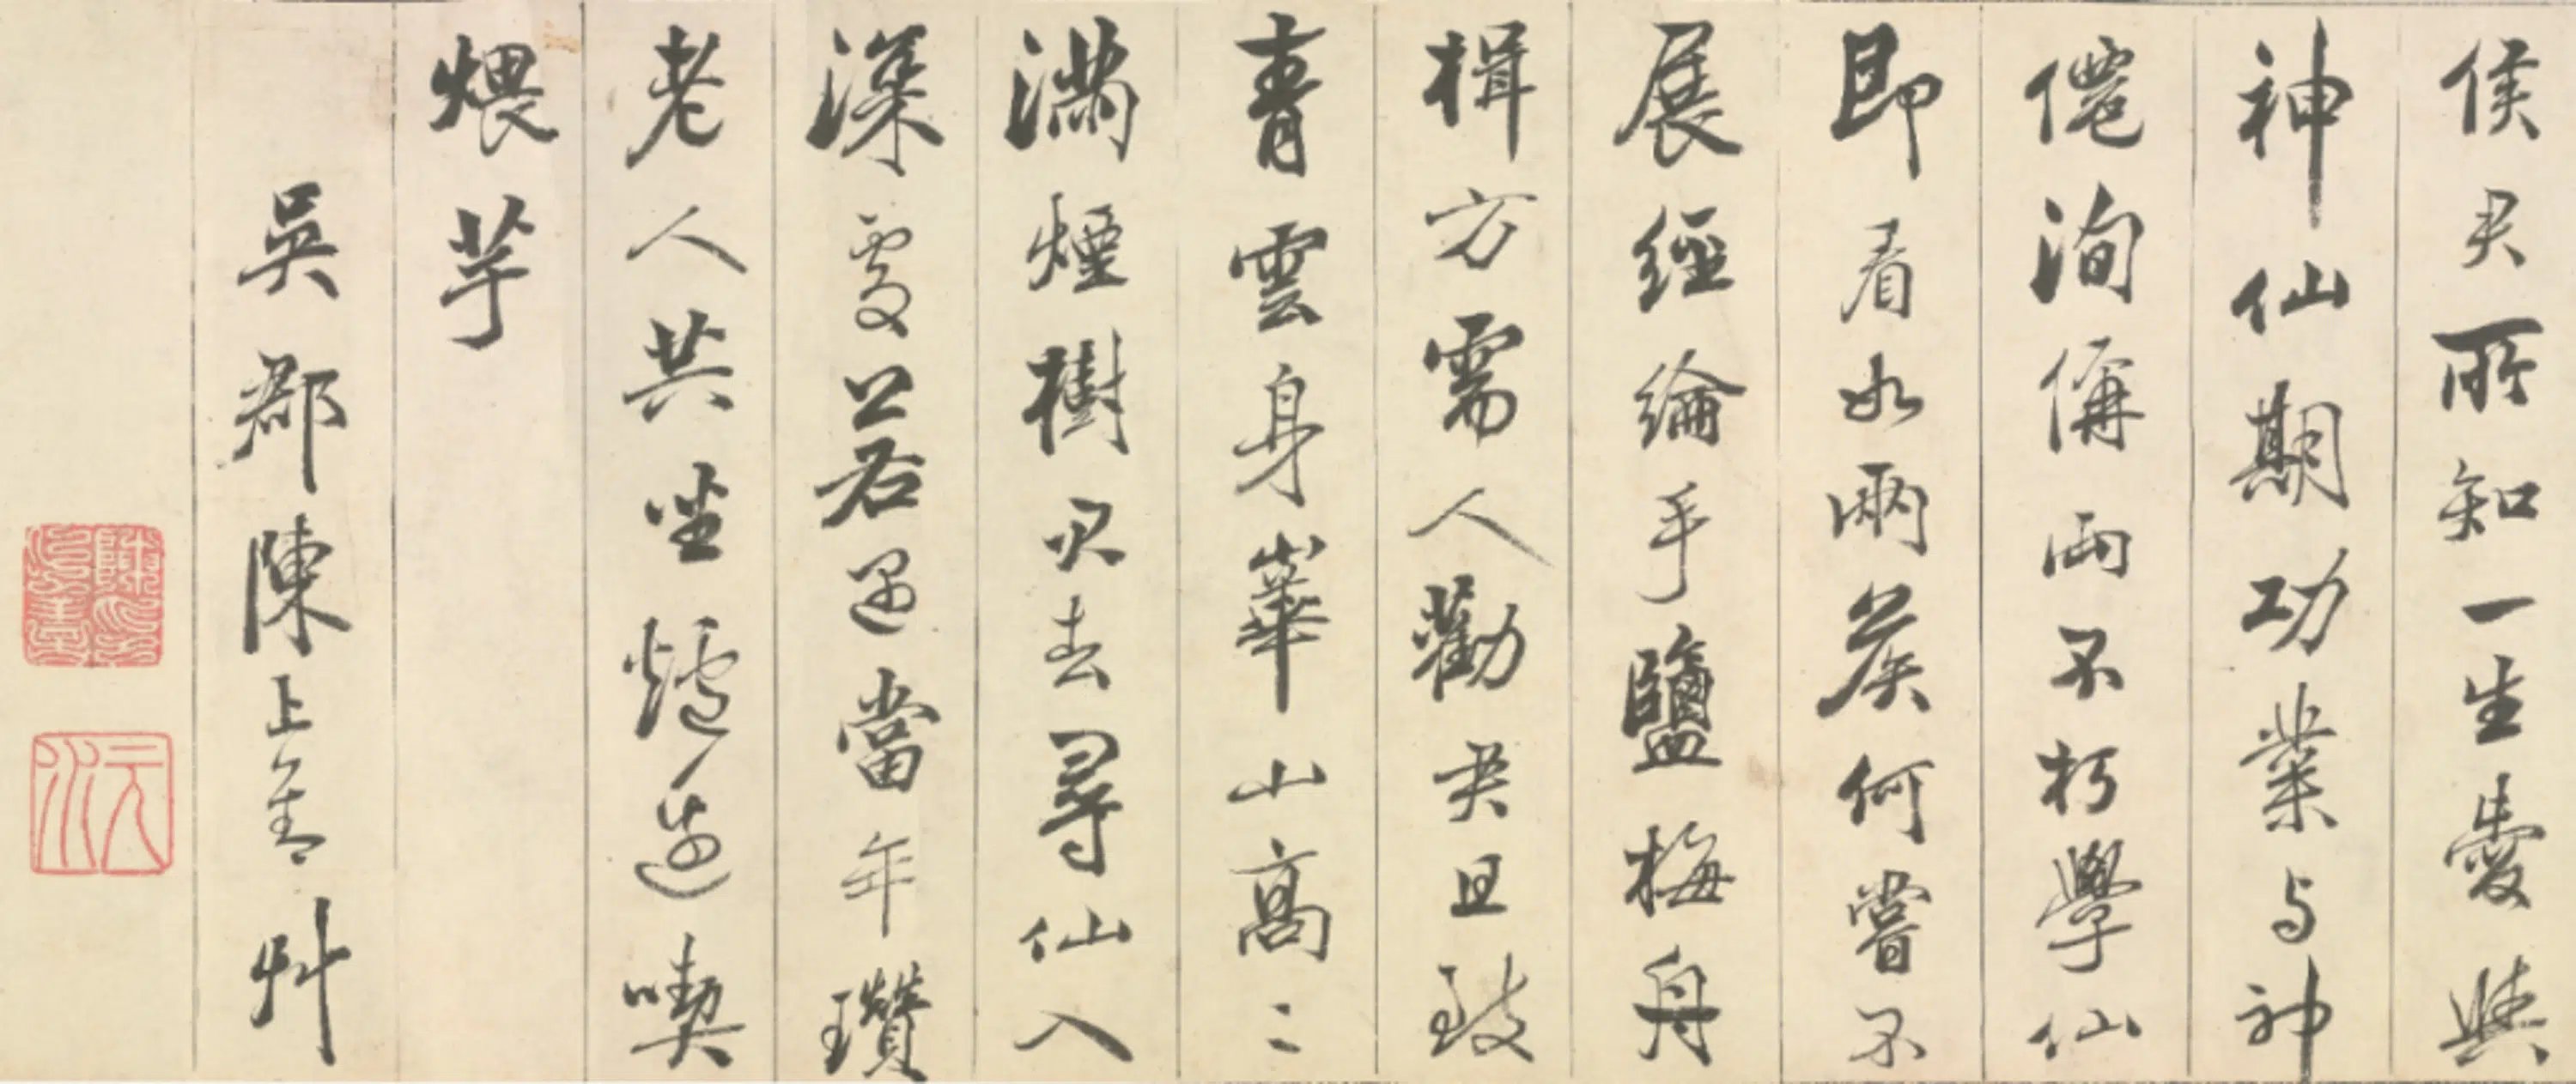 侯君所知一生愛與
神仙期功業与神
僊洵偁兩不朽學仙
即看如兩矦何嘗不
展經綸手鹽梅舟
楫方需人勸君且致
青雲身崋山高〻
滿煙樹君去尋仙入
深處若遇當年瓚
老人共坐爐邊喫
煨芋
吳郡陳上善艸